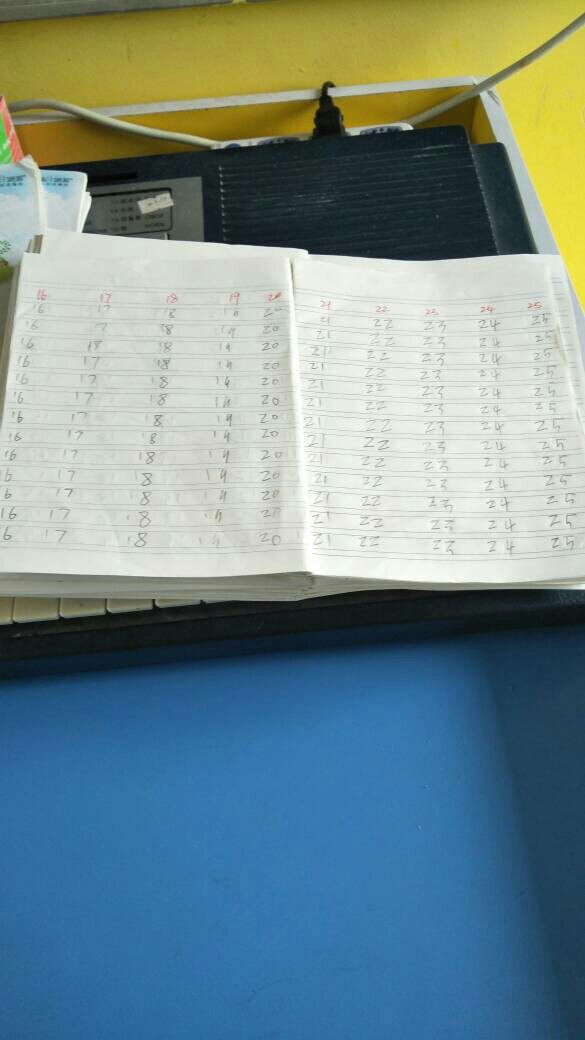 16 17 18 19 20
16 17 18 19 20
16 17 18 19 20
16 18 18 19 20
16 17 18 19 20
16 17 18 19 20
16 17 18 19 20
16 17 18 19 20
16 17 18 19 20
16 17 18 19 20
16 17 18 19 20
6 17 18 19 20
16 17 18 19 20
6 17 18 19 20
21 22 23 24 25
21 22 23 24 25
21 22 23 24 25
21 22 23 24 25
21 22 23 24 25
21 22 23 24 25
21 22 23 24 25
21 22 23 24 25
21 22 23 24 25
21 22 23 24 25
21 22 23 24 25
21 22 23 24 25
21 22 23 24 25
21 22 23 24 25